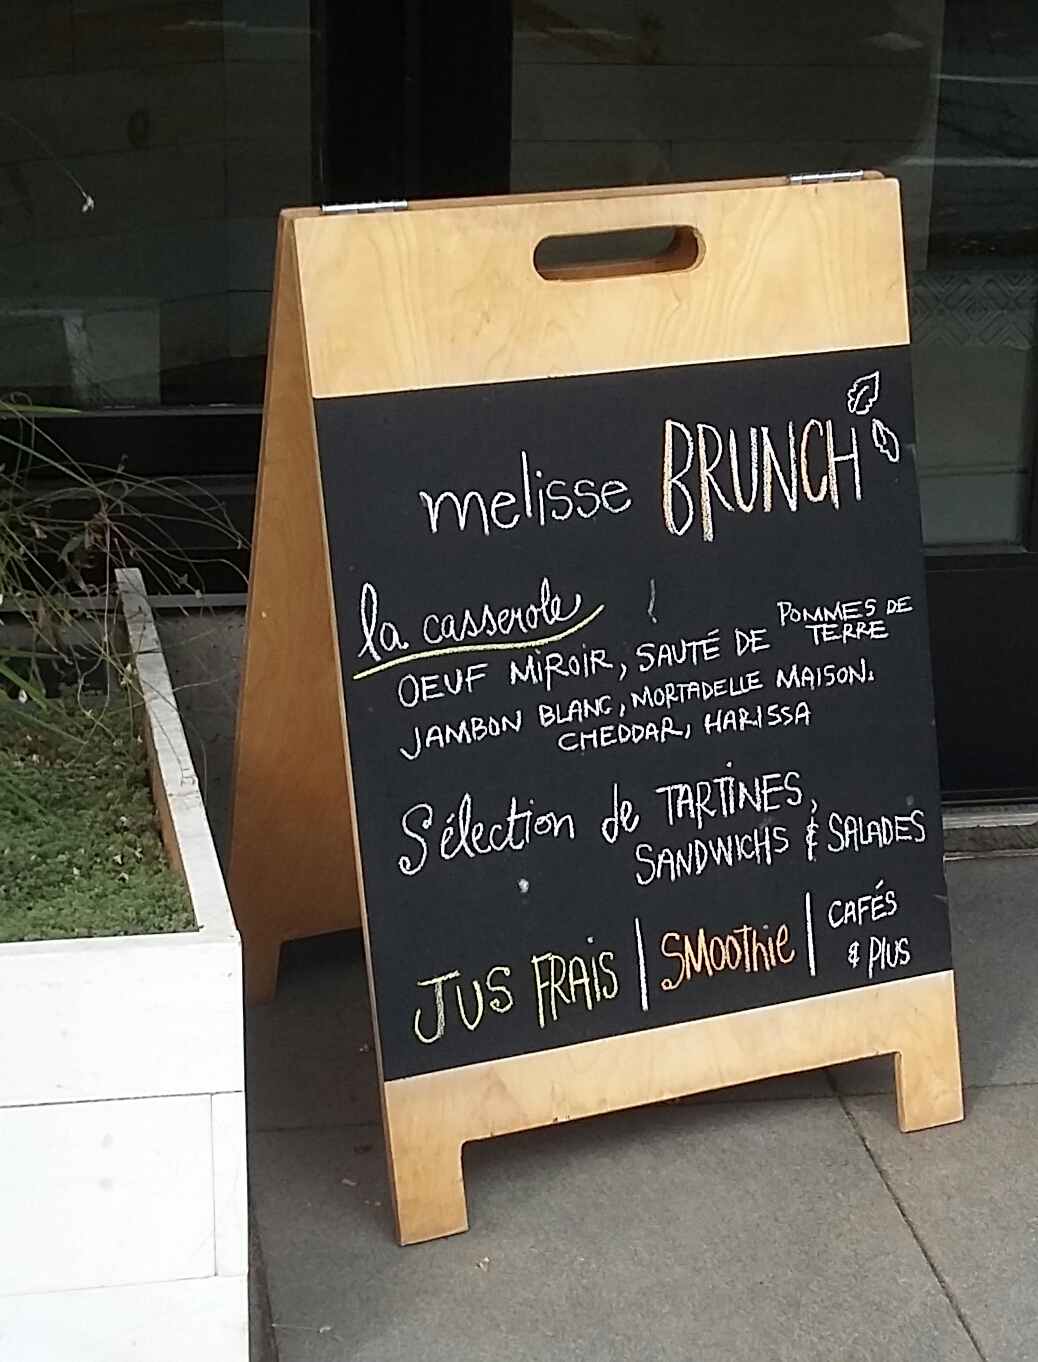 melisse BRUNCH
la casserole
OEUF MIROIR, SAUTÉ DE POMMES DE TERRE
JAMBON BLANC, MORTADELLE MAISON.
CHEDDAR, HARISSA
Sélection de TARTINES,
SANDWICHS & SALADES
JUS FRAIS | SMOOTHIE | CAFÉS & PLUS